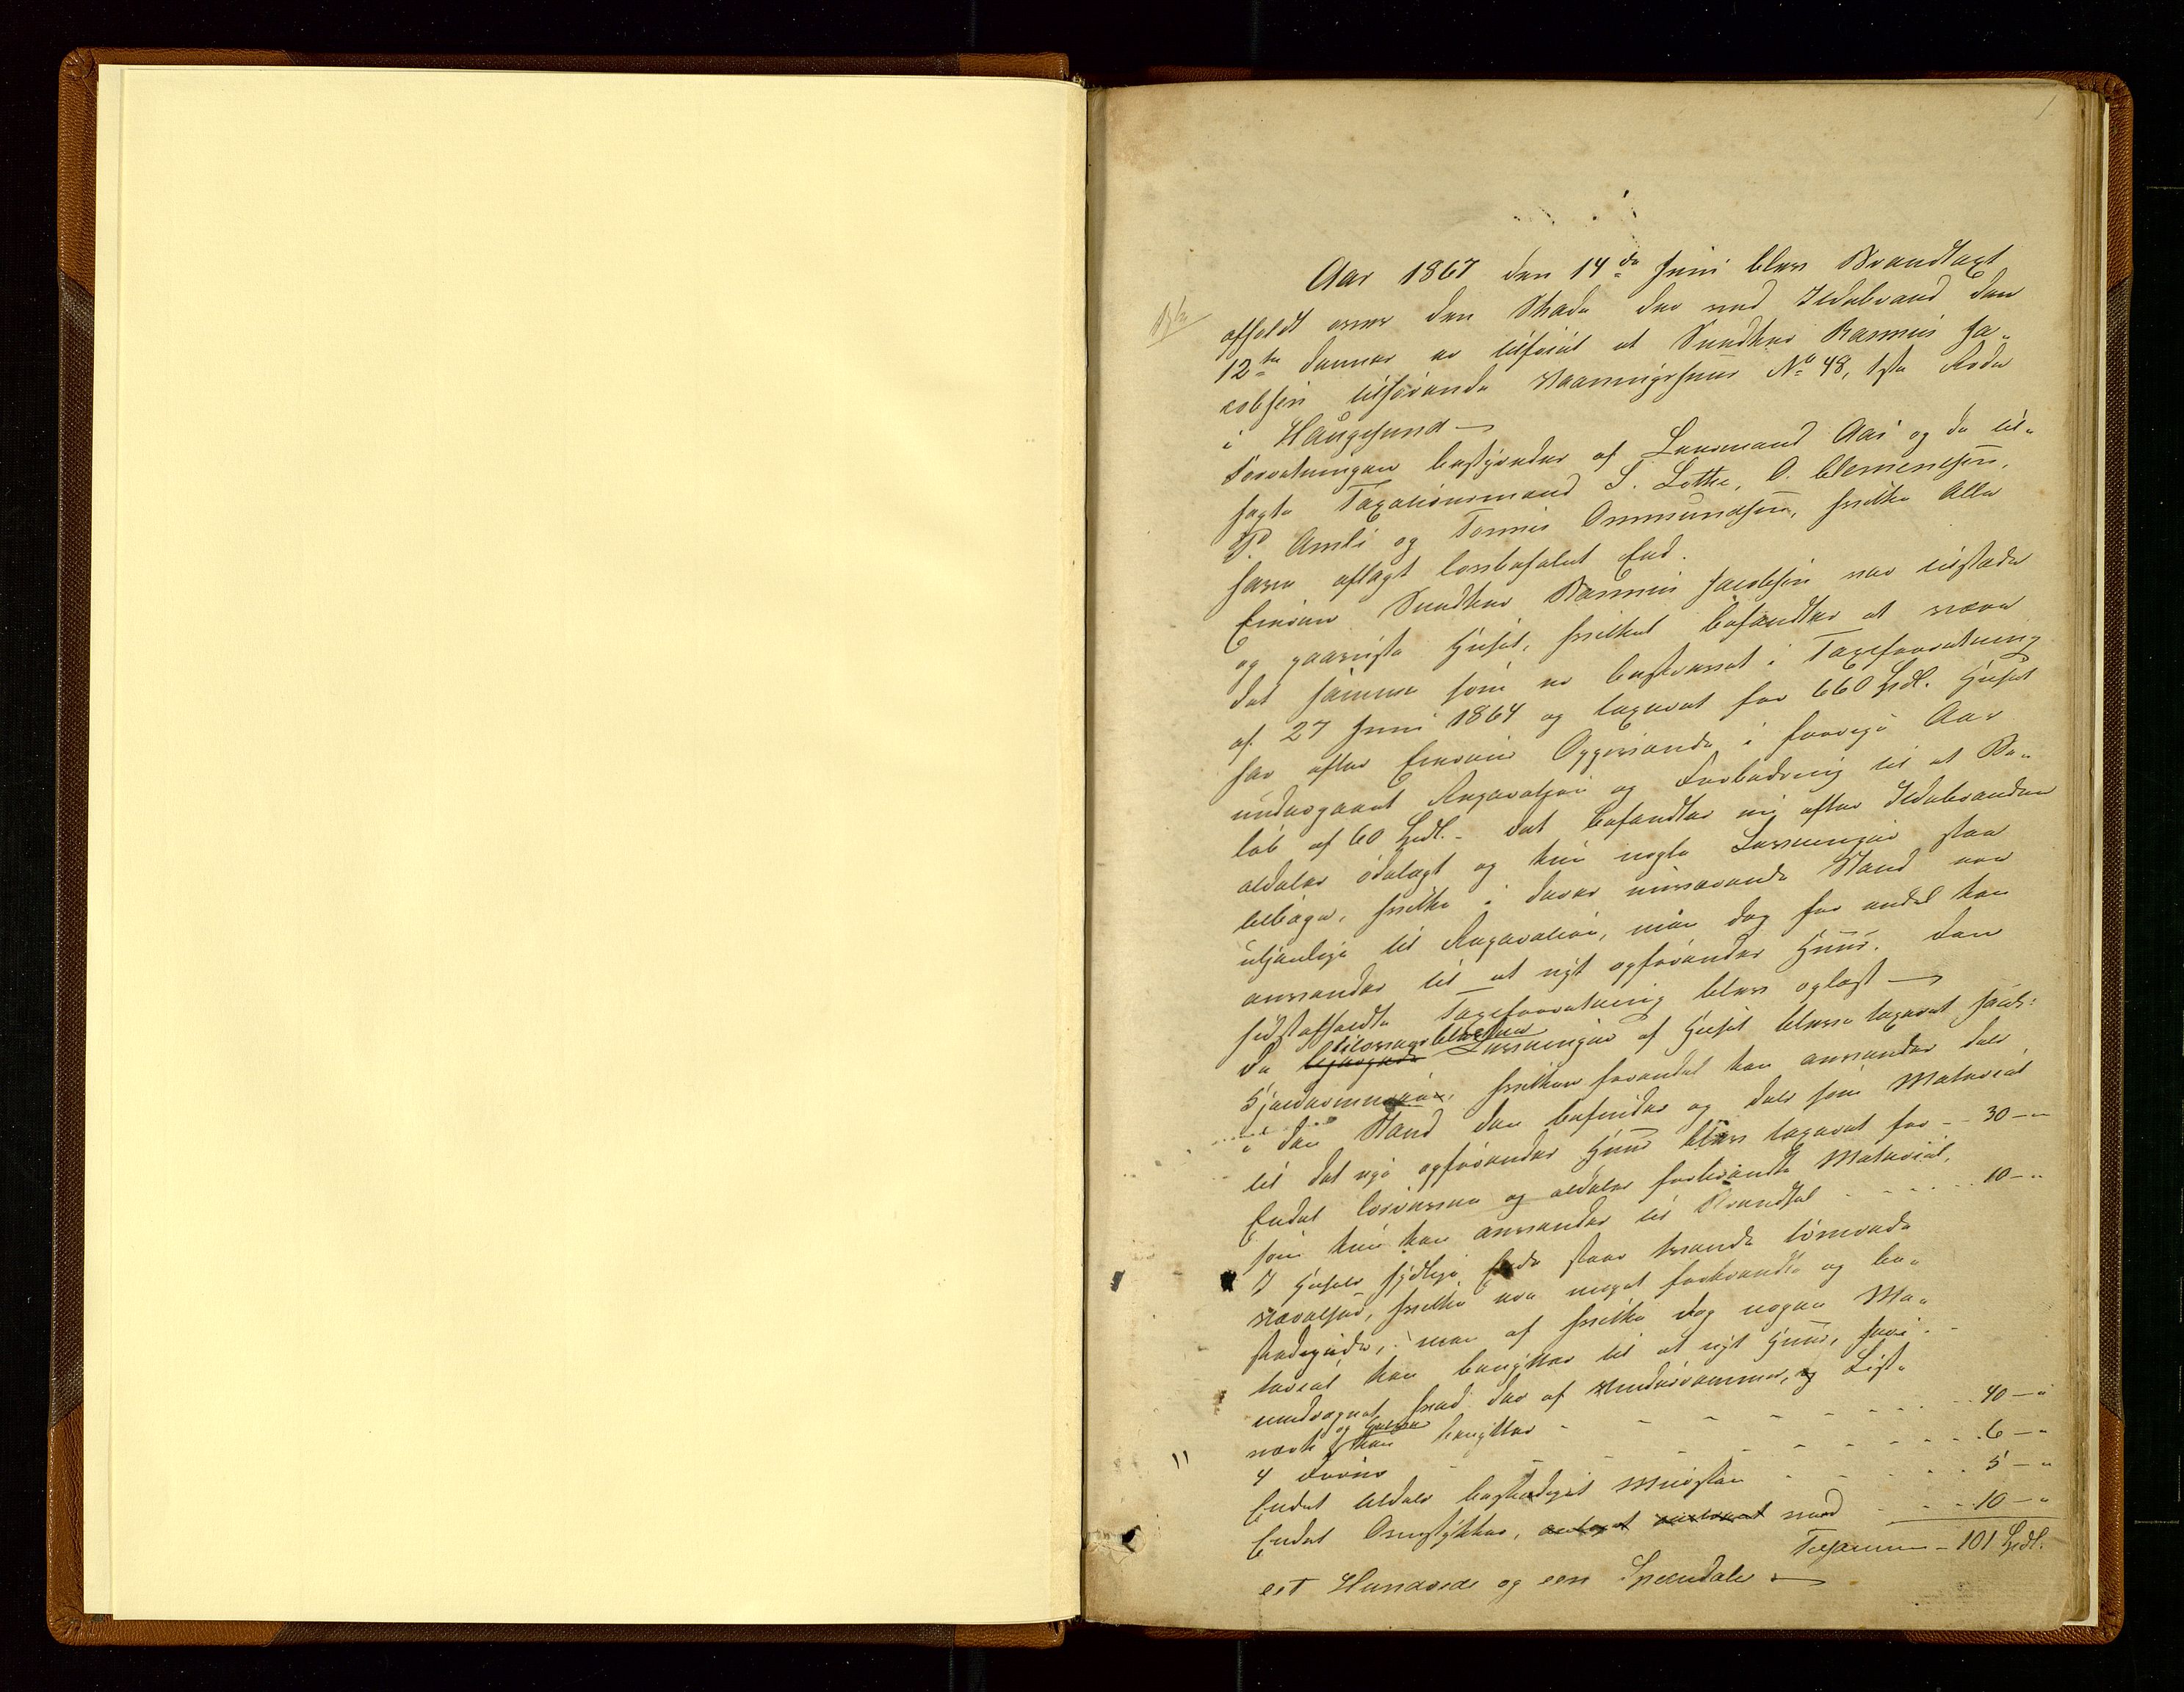 1
Aar 1867 den 14de Juni blev Brandtaxt
afholdt over den Skade der ved Ildebrand den
12te dennes er tilføiet et Snedker Rasmus Ja-
cobsen tilhørende Vaaningshuus No 48, 1ste Rode
i Haugesund —
Forretningen bestyredes af Lensmand Aas og de til-
sagte Taxationsmænd S. Lothe, O. Clemenetsen,
P. Amli og Tønnes Ommundsen, hvilke Alle
have aflagt lovbefalet Eed.
Eieren Snedker Rasmus Jacobsen var tilstede
og paaviste Huset, hvilket befandtes at være
det samme som er beskrevet i Taxtforretning
af 27 Juni 1864 og taxeret for 660 Spdl. Huset
har efter Eierens Opgivende i forrige Aar
undergaaet Reparation og Forbedring til et Be-
løb af 60 Spdl. – Det befandtes nu efter Ildebranden
aldeles ødelagt og kun nogle Levninger staa
tilbage, hvilke i deres nuværende Stand ere
utjenlige til Reparation, men dog for endel kan
anvendes til et nyt opførendes Huus. Den
sidstafholdte Taxtforretning blev oplæst —
De tilovers blevne Levninger af Huset bleve taxeret saal:
hvilken forendel kan anvendes dels
i den Stand den befindes og dels som Materiale
til det nye opførendes Huus blev taxeret for - - 30 — "
Endel og aldeles forbrændte Material,
som kun kan anvendes til Brændsel - - - - - 10 — "
I Husets sydlige Ende staar tvende tømrede
Værelser, hvilke ere meget forbrændte og be-
skadigede, men af hvilke dog nogen Ma-
terial kan benyttes til et nyt Huus, heri
undregnet hvad der af Vinduesrammer, og List-
værk og kan benyttes - - - - - - 40 — "
4 Døre - - - - - - 6 — "
Endel aldeles beskadiget Muursteen - - - - 5 — "
Endel Ovnstykker, med - - - 10 — "
Tilsammen – 101 Spdl.
eet Hundrede og een Speciedaler —